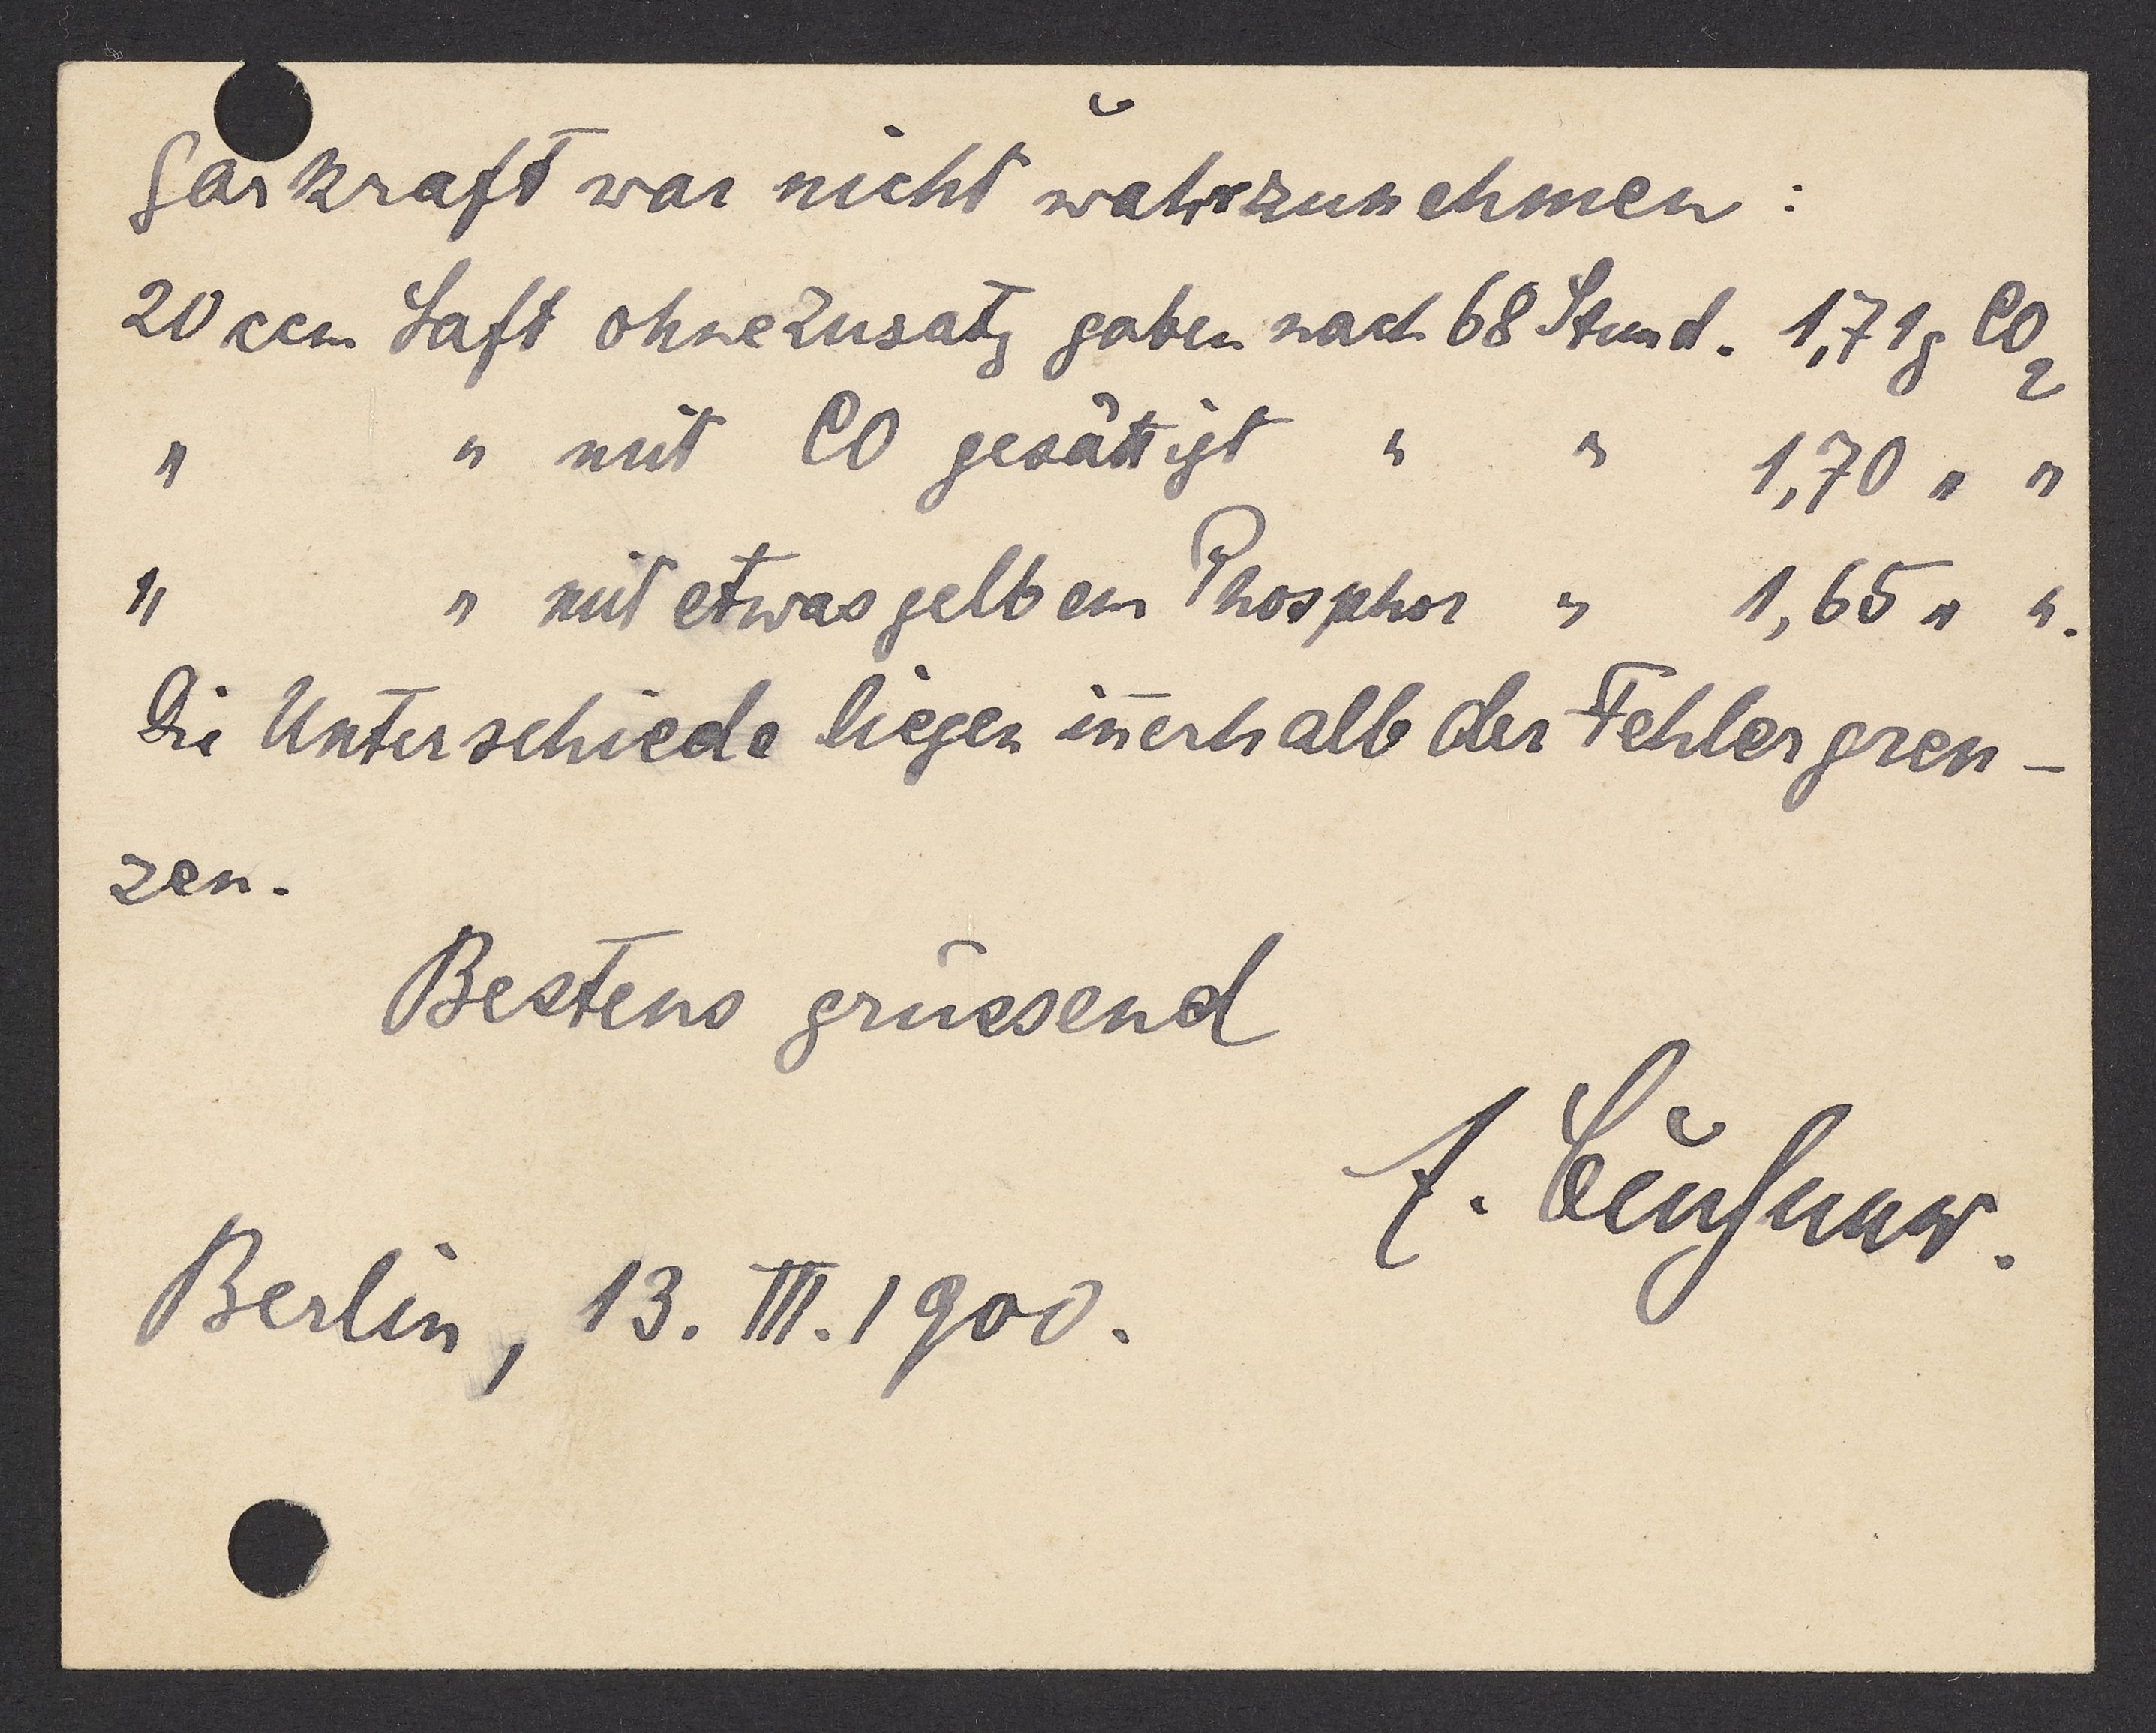 Gärkraft war nicht wahrzunehmen:
20 ccm Saft ohne Zusatz gaben nach 68 Stund. 1,71 g CO₂
" " mit CO gesättigt " " 1,70 " "
" " mit etwas gelbem Phosphor " 1,65 " ".
Die Unterschiede liegen iñerhalb der Fehlergren-
zen.
Bestens grüssend
E. Buchner.
Berlin, 13. III. 1900.